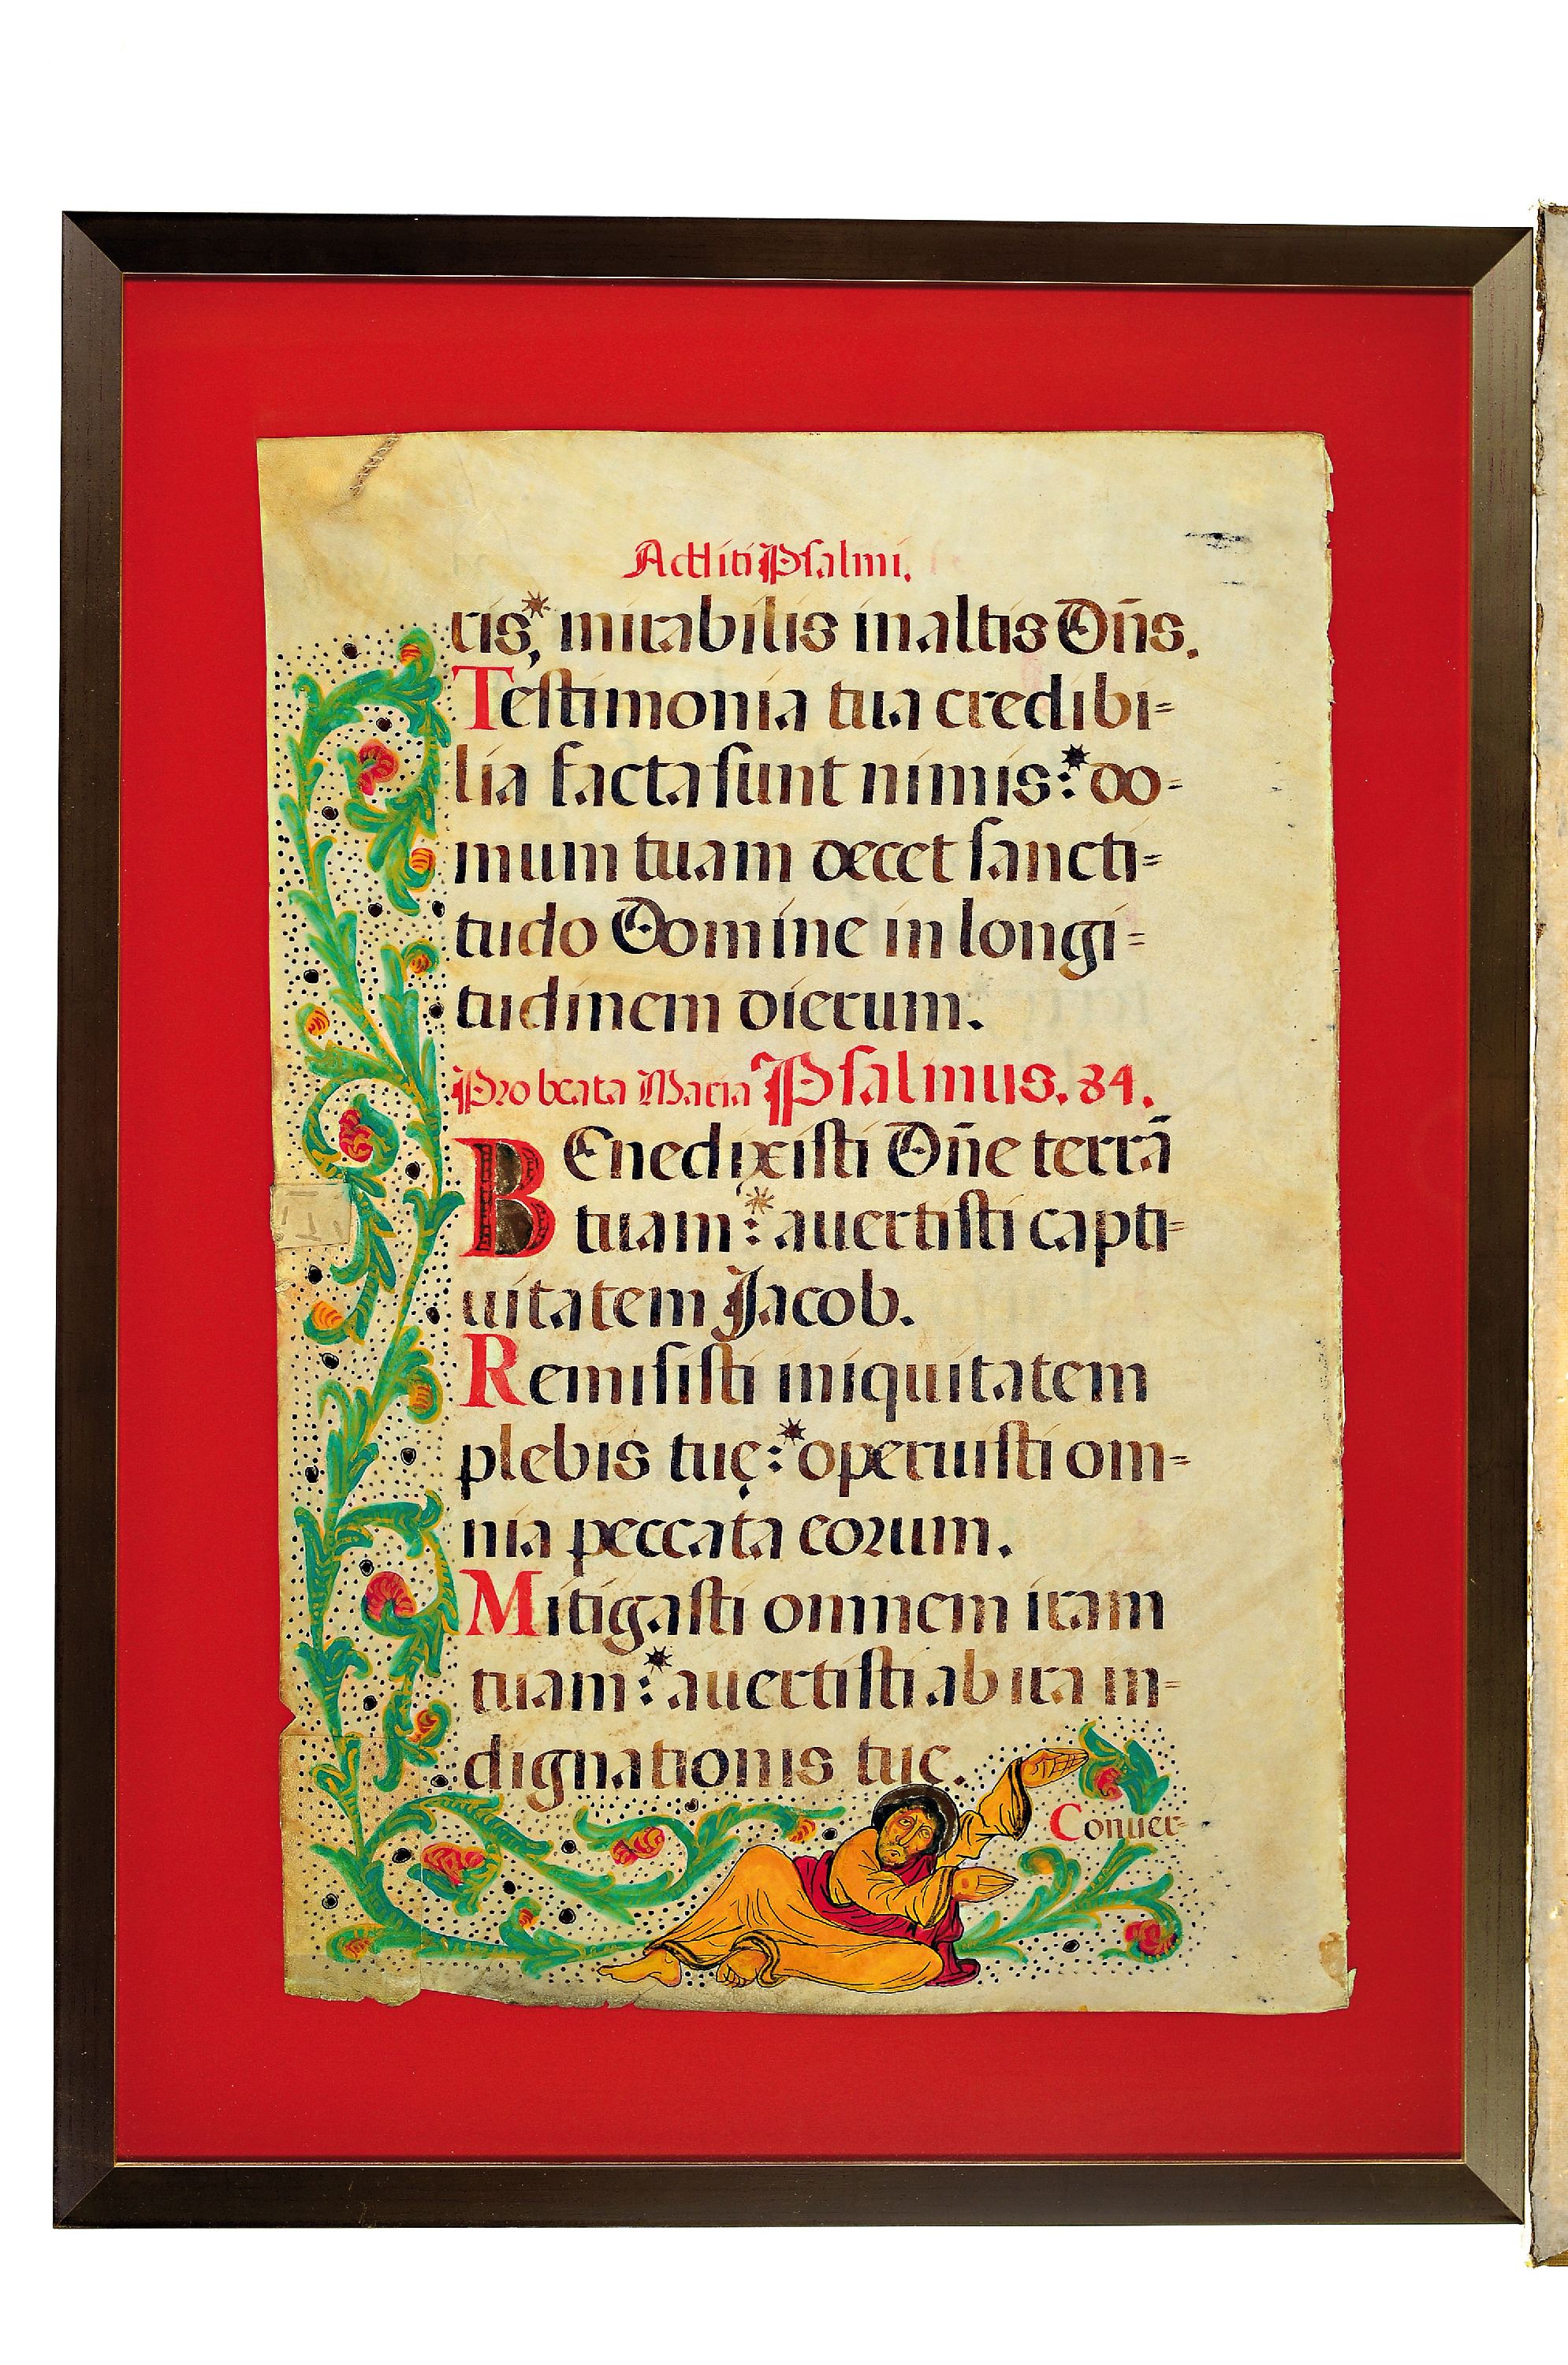 Additi Psalmi.
ris*, mirabilis in altis Dñs.
Testimonia tua credibi=
lia facta sunt nimis:* do=
mum tuam decet sancti=
tudo Domine in longi=
tudinem dierum.
Pro beata Maria Psalmus. 84.
BEnedixisti Dñe terrā
tuam:* auertisti capti=
uitatem Jacob.
Remisisti iniquitatem
plebis tuę:* operuisti om=
nia peccata eorum.
Mitigasti omnem iram
tuam:* auertisti ab ira in=
dignationis tuę.
Conuer=